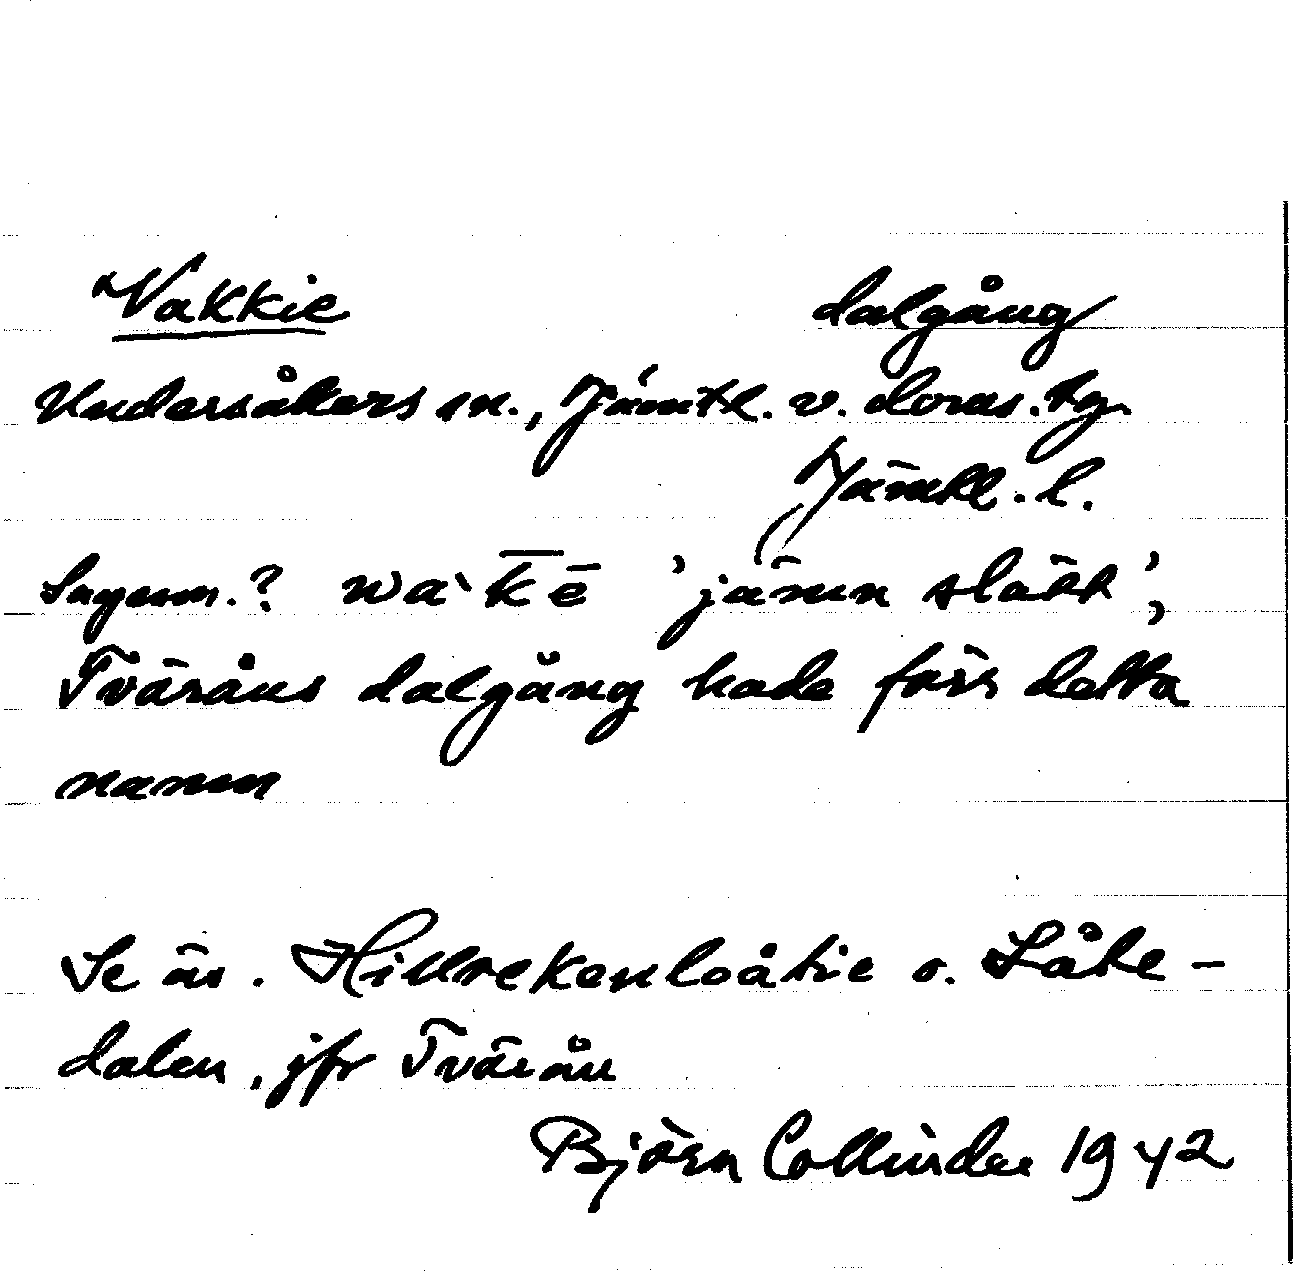 Vakkie dalgång
Undersåkers sn., Jämtl. v. doms. tg.
Jämtl. l.
Sagesm.? wa`k̄ē 'jämn slätt',
Tväråns dalgång hade förr detta
namn
Se än. o. Låte-
dalen, jfr Tvärån
Björn Collinder 1942